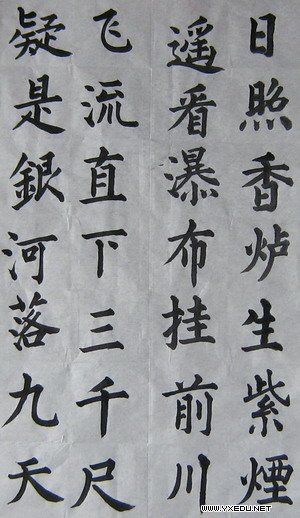 日照香炉生紫煙
遥看瀑布挂前川
飞流直下三千尺
疑是銀河落九天
WWW.YXEDU.NET